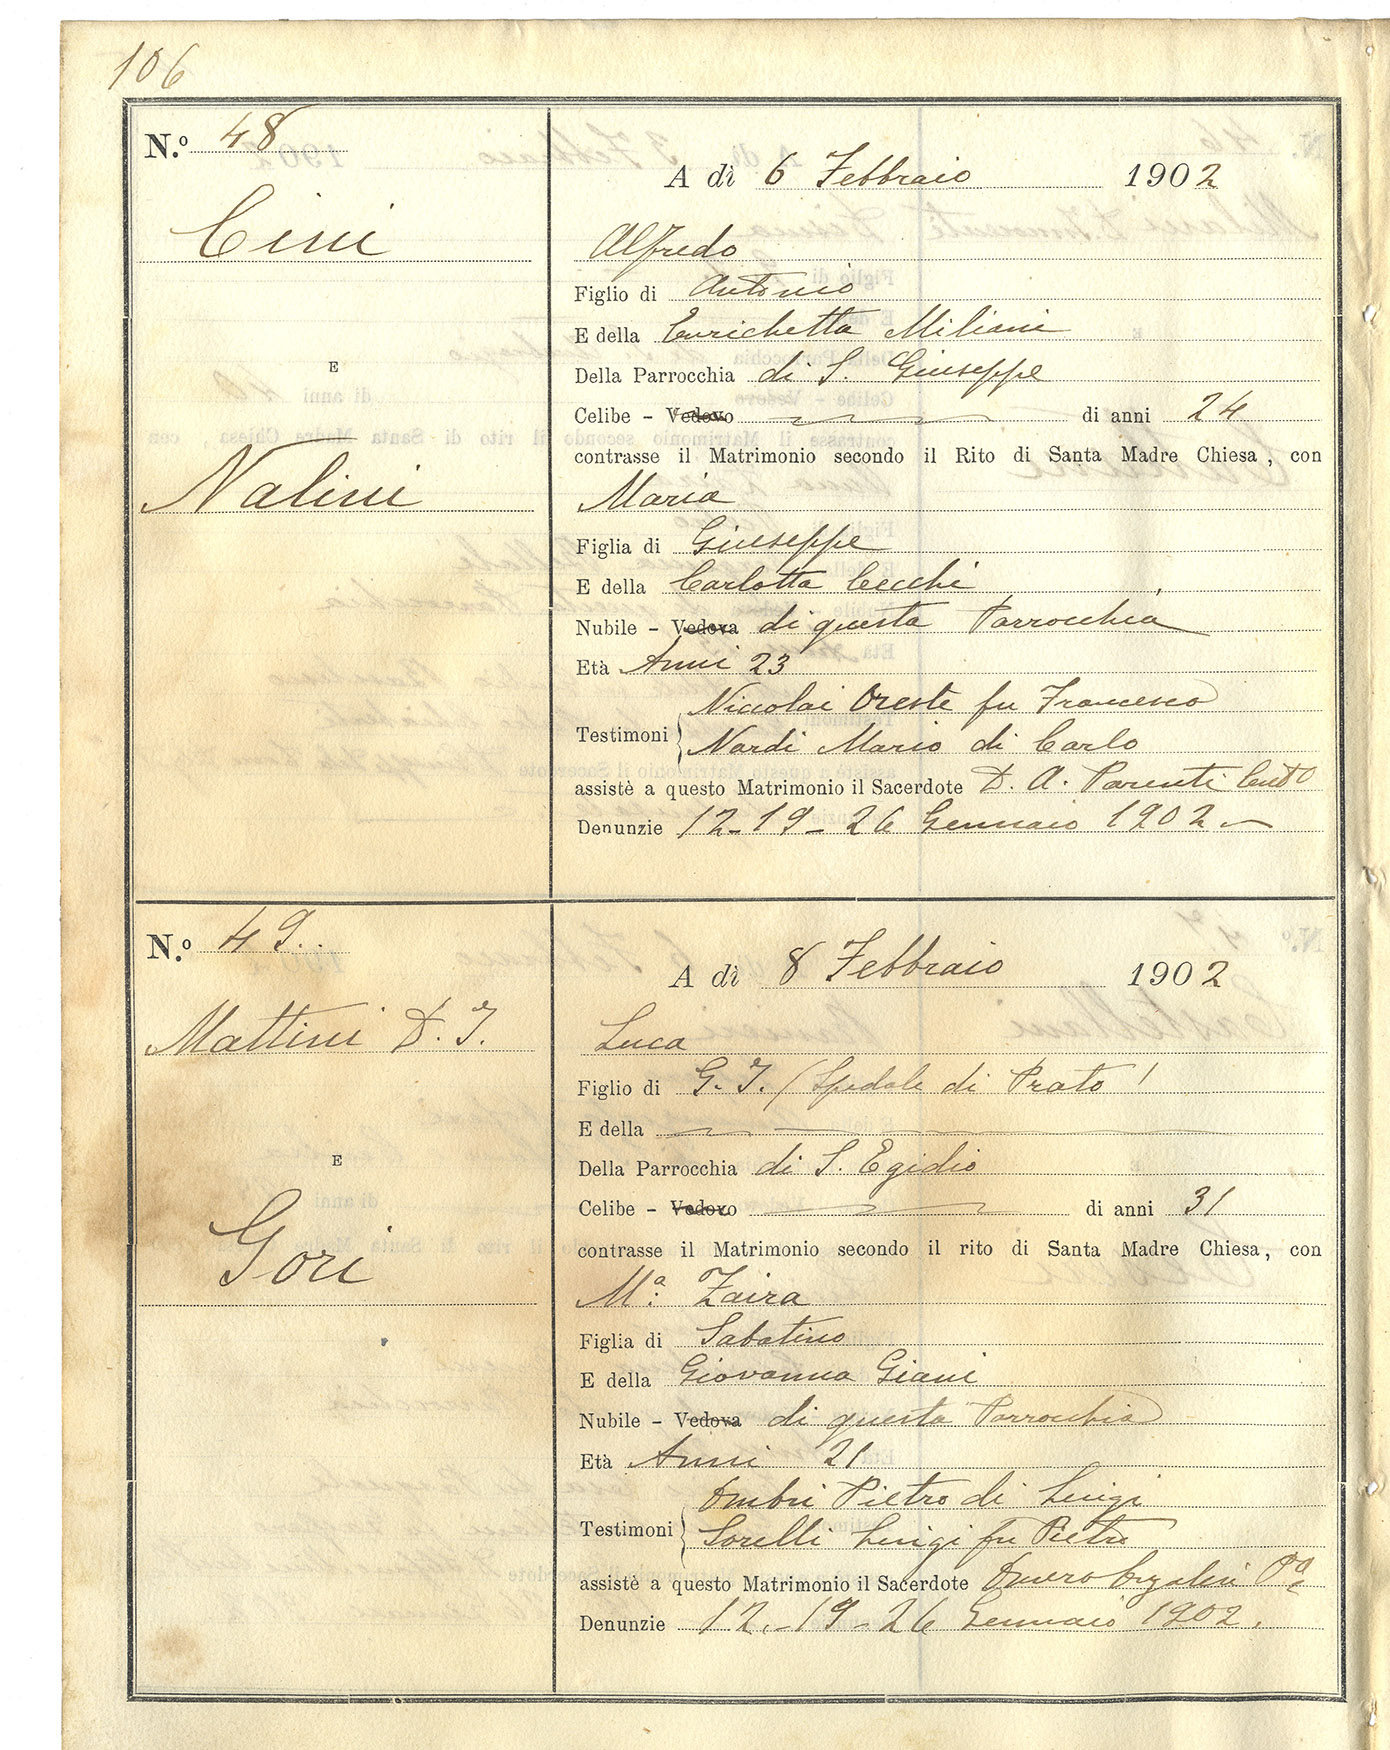 106
N.º 48
A dì 6 Febbraio 1902
Cini
Alfredo
Figlio di Antonio
E della Enrichetta Miliani
E
Della Parrocchia di S. Giuseppe
Celibe - Vedovo di anni 24
contrasse il Matrimonio secondo il Rito di Santa Madre Chiesa, con
Nalini
Maria
Figlia di Giuseppe
E della Carlotta Cecchi
Nubile - Vedova di questa Parrocchia
Età Anni 23
Niccolai Oreste fu Francesco
Testimoni
Nardi Mario di Carlo
assistè a questo Matrimonio il Sacerdote D. A. Parenti
Denunzie 12-19-26 Gennaio 1902
N.º 49..
A dì 8 Febbraio 1902
Mattini D. I.
Luca
Figlio di G. I. / Spedale di Prato /
E della
E
Della Parrocchia di S. Egidio
Celibe - Vedovo di anni 31
contrasse il Matrimonio secondo il rito di Santa Madre Chiesa, con
Gori
Mª: Zaira
Figlia di Sabatino
E della Giovanna Giani
Nubile - Vedova di questa Parrocchia
Età Anni 21
Pietro di Luigi
Testimoni
Sorelli Luigi fu Pietro
assistè a questo Matrimonio il Sacerdote
Denunzie 12.-19-26 Gennaio 1902.